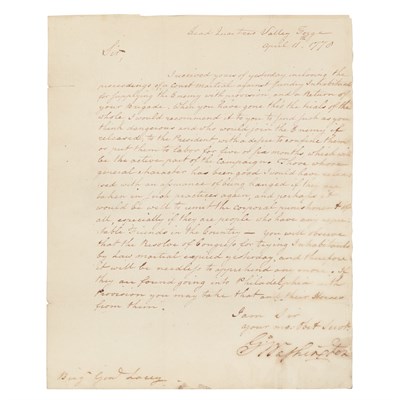 Head Quarters Valley Forge
April 11th 1778
Sir
I received yours of yesterday inclosing the
proceedings of a Court Martial against sundry Inhabitants
for supplying the Enemy with provision and a Return of
your Brigade. When you have gone thro the trials of the
whole, I would recommend it to you to send such as you
think dangerous and who would join the Enemy if
released, to the President with a desire to confine them
or put them to labor for five or six months which will
be the active part of the Campaign. Those whose
general character has been good I would have released
with an assurance of being if they are
taken in such practices again, and perhaps it
would be well to remit the corporal punishment
all, especially if they are people who have any
able Friends in the Country — you will observe
that the Resolve of Congress for trying Inhabitants
by Law martial expired yesterday, and therefore
it will be needless to apprehend any more. If
they are found going into Philadelphia with
Provision you may take that and their Horses
from them.
I am Sir
your most Obt Servt
Go Washington
Brigr Genl Lacey